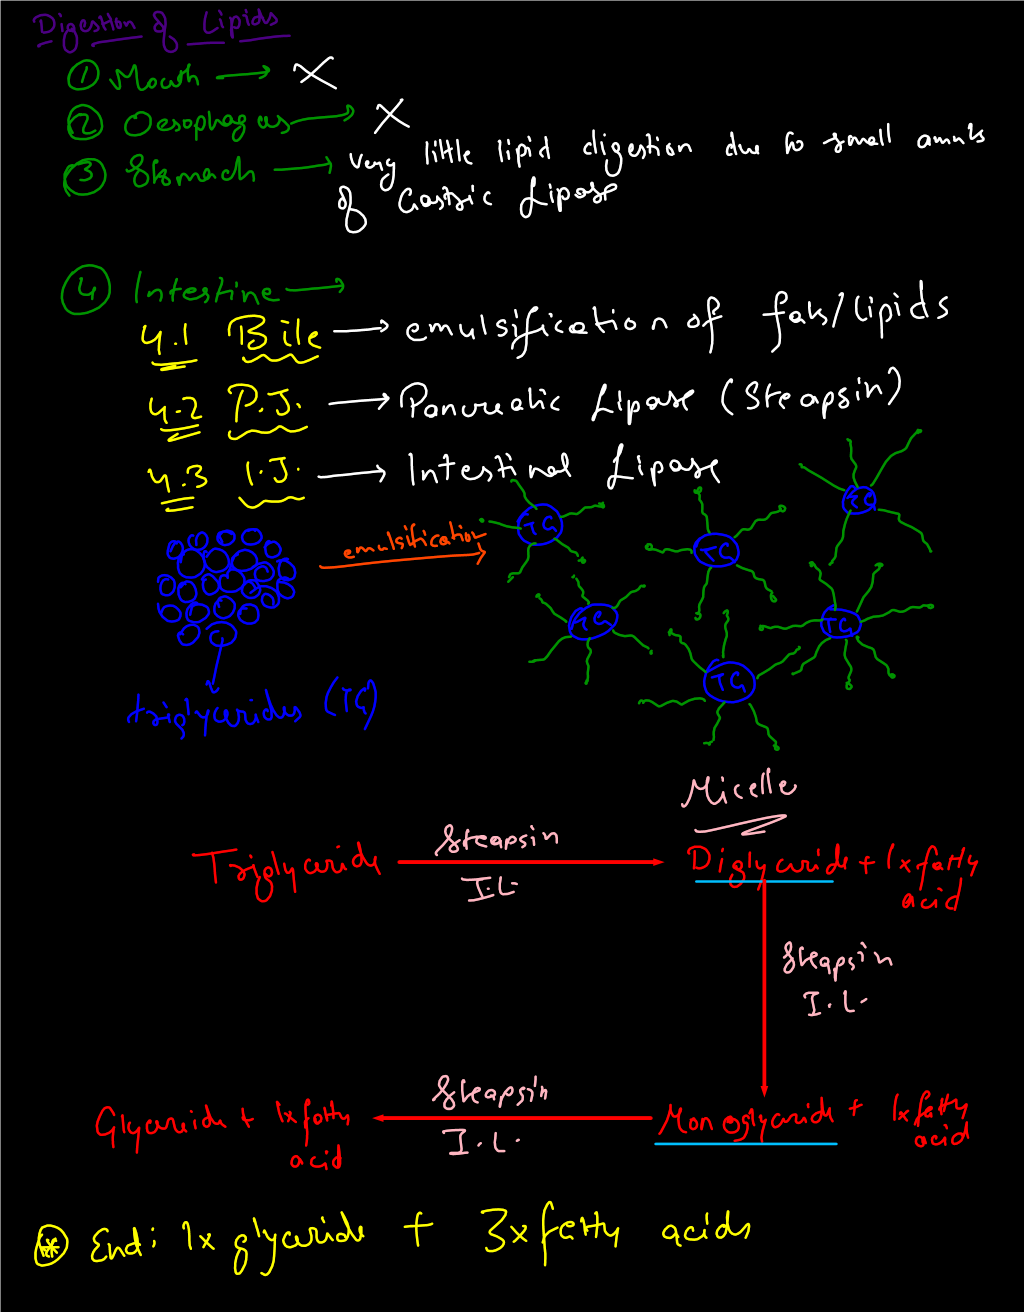 Digestion of Lipids
① Mouth → X
② Oesophagus → X
③ Stomach → very little lipid digestion due to small amnts
of Gastric Lipase
④ Intestine →
4.1 Bile → emulsification of fats/lipids
4.2 P.J. → Pancreatic Lipase (Steapsin)
4.3 I.J. → Intestinal Lipase
emulsification
TG
TG
TG
TG
TG
TG
triglycerides (TG)
Micelle
Triglyceride
Steapsin
I.L.
Diglyceride + 1x fatty
acid
Steapsin
I.L.
Glyceride + 1x fatty
acid
Steapsin
I.L.
Monoglyceride + 1x fatty
acid
End: 1x glyceride + 3x fatty acids